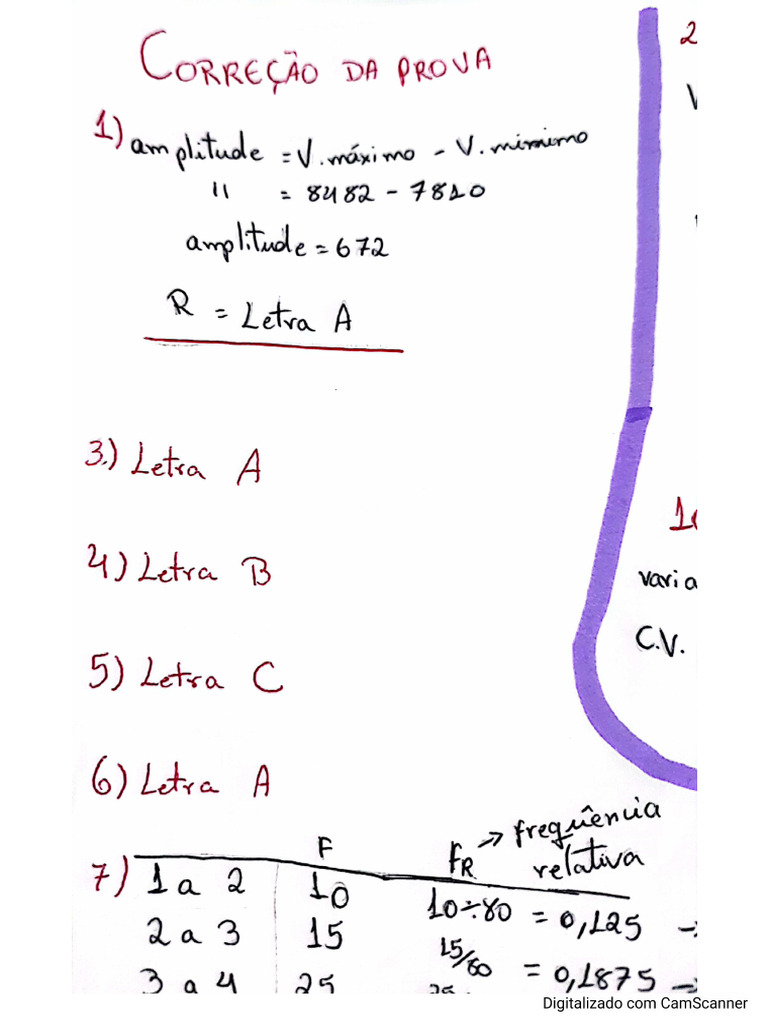 CORREÇÃO DA PROVA
1) amplitude = V.máximo - V.mínimo
" = 8482 - 7810
amplitude = 672
R = Letra A
3.) Letra A
4) Letra B
5) Letra C
6) Letra A
F
FR → frequência relativa
7) 1 a 2 10 10÷80 = 0,125 →
2 a 3 15 15/80 = 0,1875 →
3 a 4 25 25
2
1
varia
C.V.
Digitalizado com CamScanner